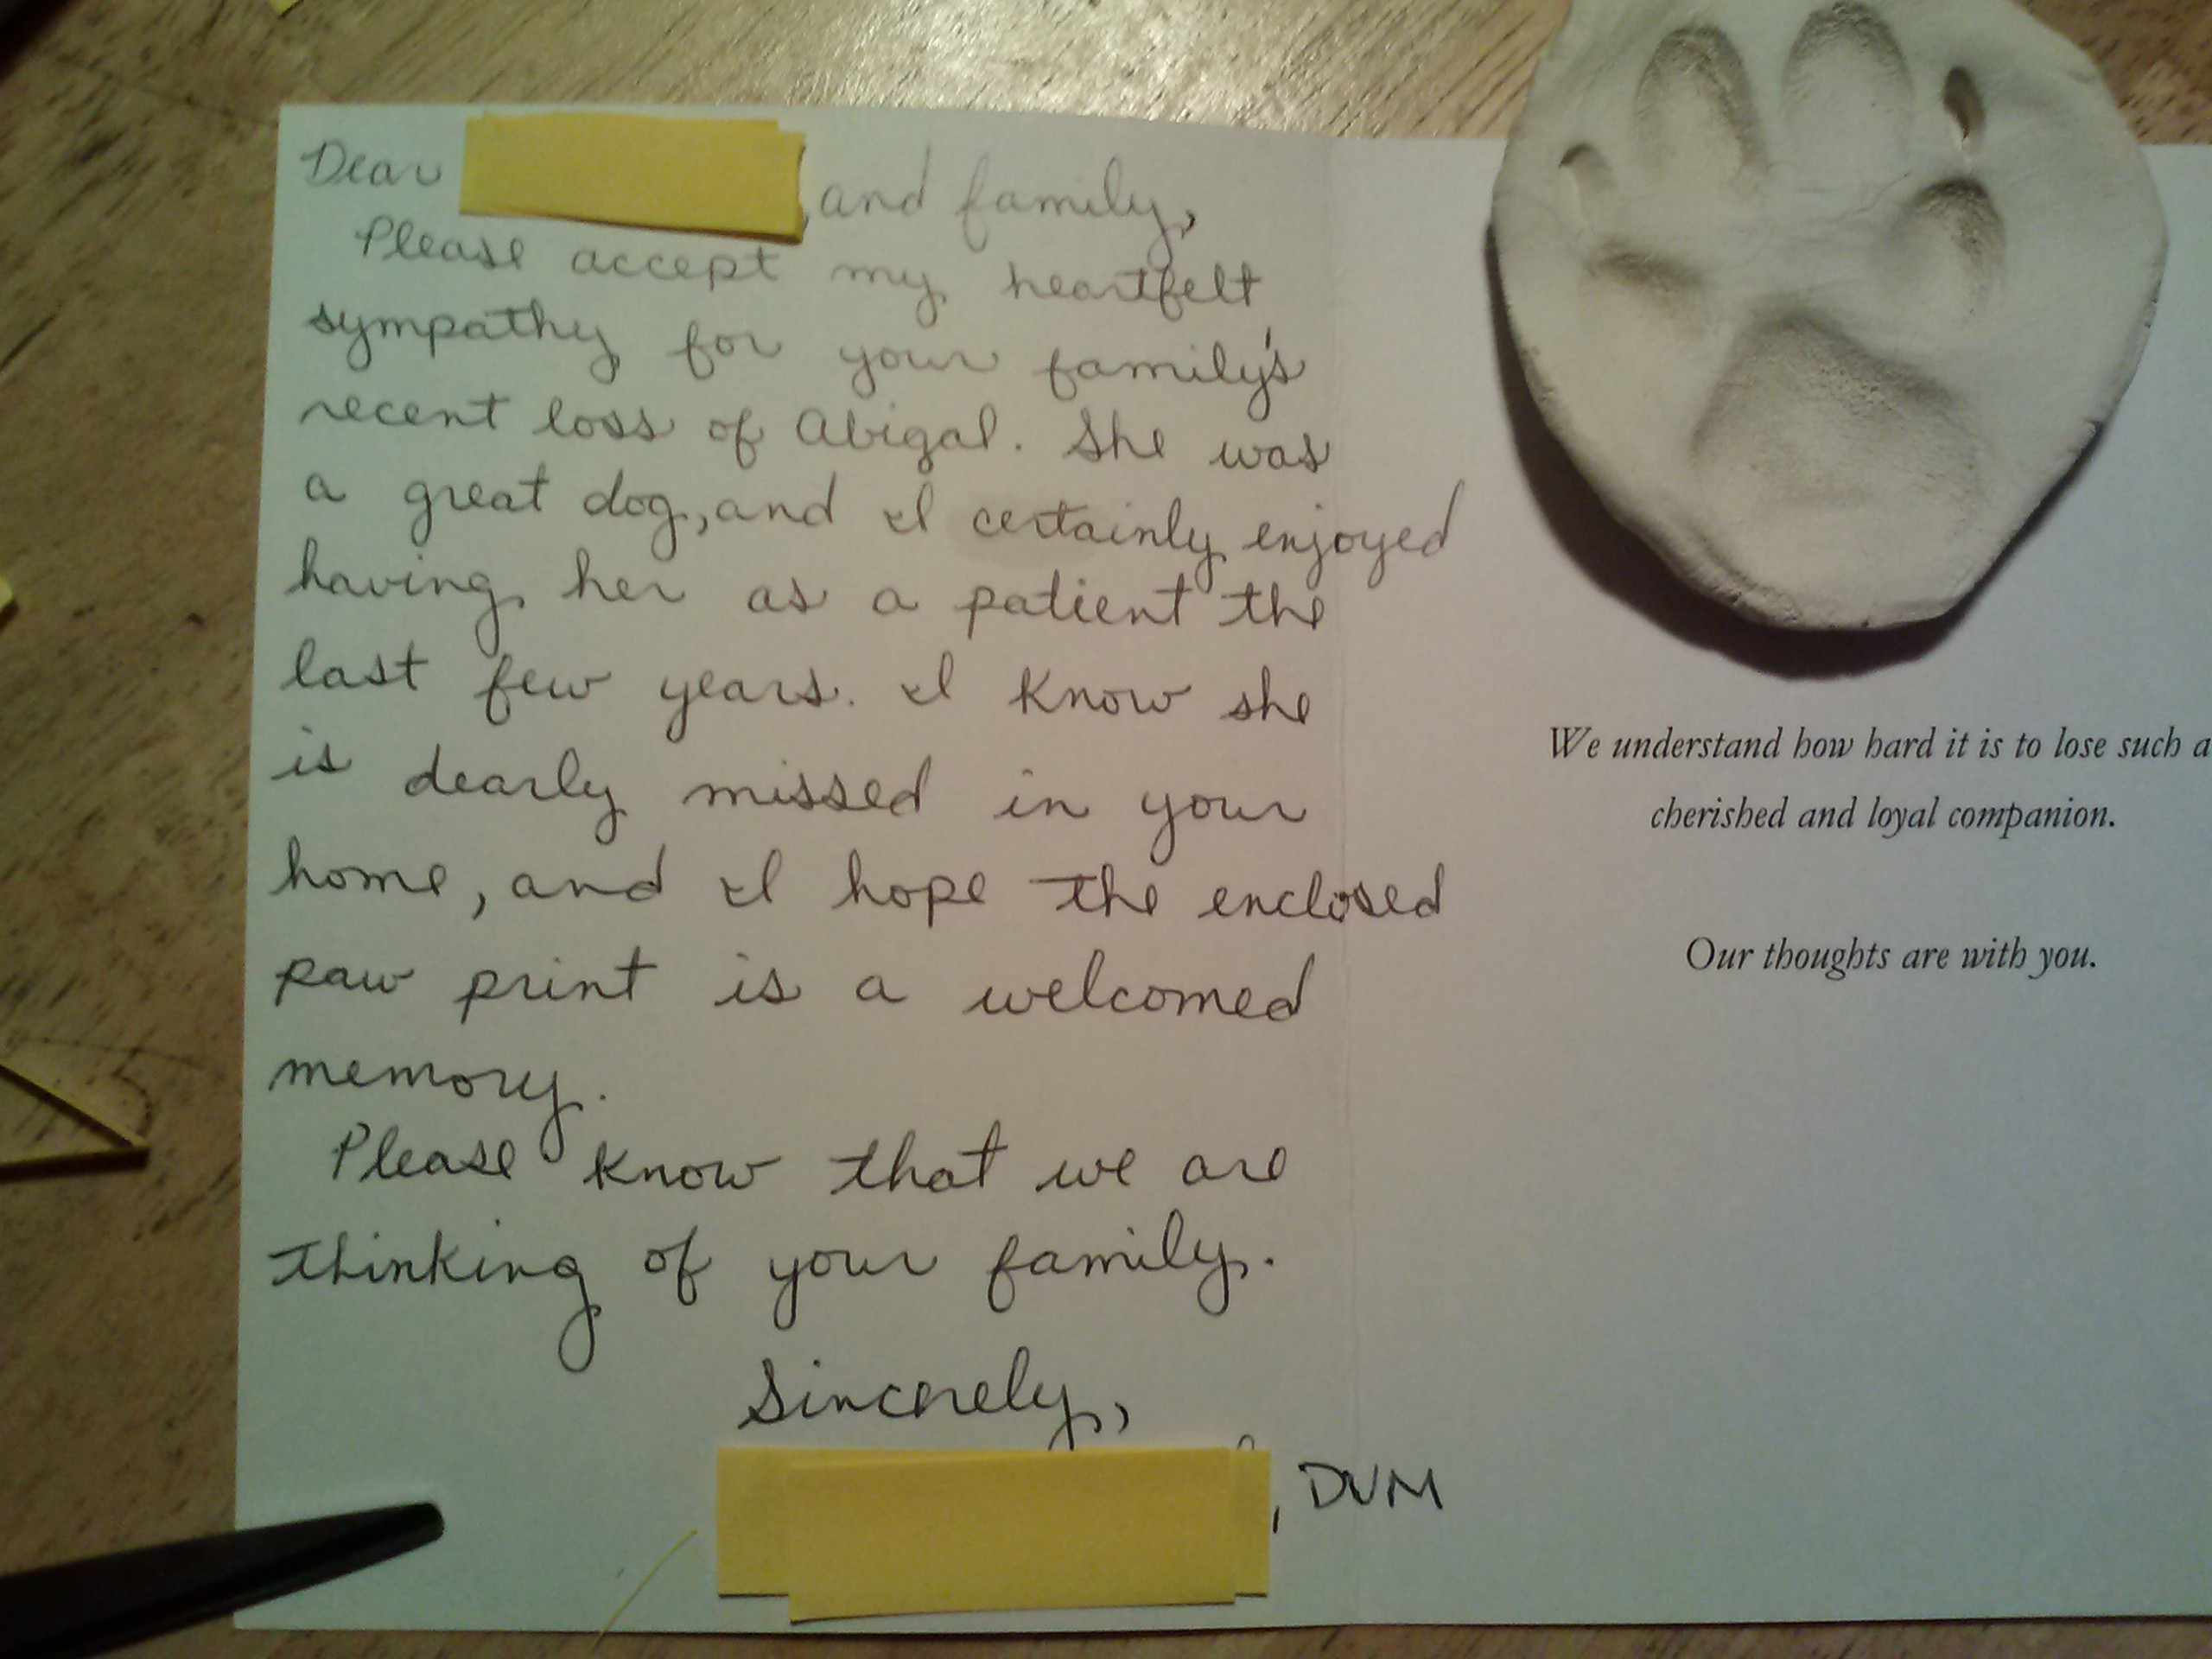 Dear , and family,
Please accept my heartfelt
sympathy for your family's
recent loss of Abigal. She was
a great dog, and I certainly enjoyed
having her as a patient the
last few years. I know she
is dearly missed in your
home, and I hope the enclosed
paw print is a welcomed
memory.
Please know that we are
thinking of your family.
Sincerely,
, DVM
We understand how hard it is to lose such a
cherished and loyal companion.
Our thoughts are with you.